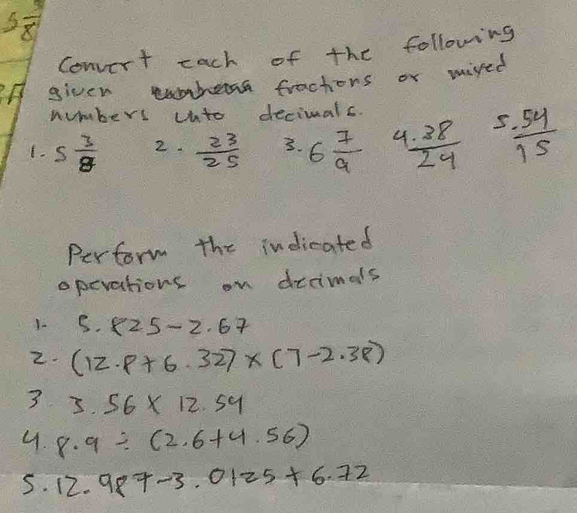 5/8
Convert each of the following
given fractions or mixed
numbers into decimals.
1. 5 3/8 2. 23/25 3. 6 7/9 4. 38/24 5. 54/15
Perform the indicated
operations on decimals
1. 5.825-2.67
2. (12.8+6.32) × (7-2.38)
3. 3.56 × 12.54
4. 8.9 ÷ (2.6+4.56)
5. 12.987-3.0125+6.72